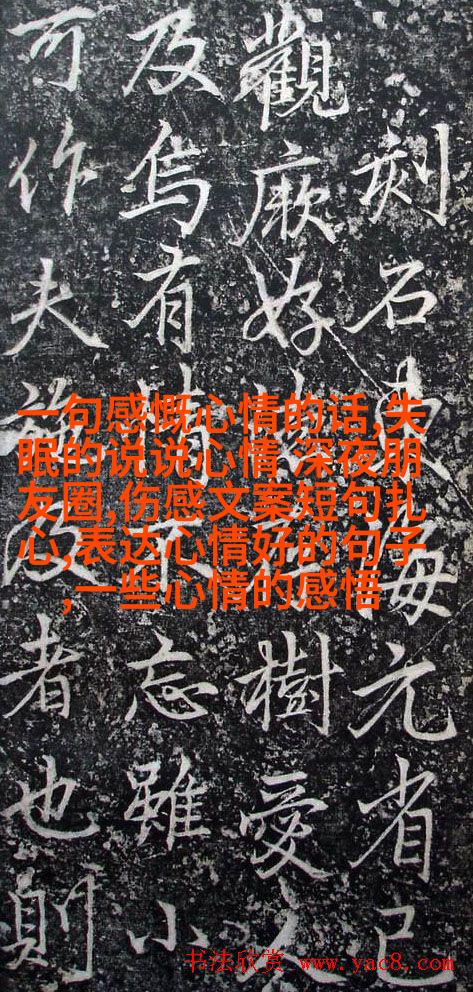 刻石東海元省己
觀厥好樹愛
及焉有情不忘雖小
可作夫者也則
一句感慨心情的话,失
眠的说说心情 深夜朋
友圈,伤感文案短句扎
心,表达心情好的句子
,一些心情的感悟
书法欣赏 www.yac8.com